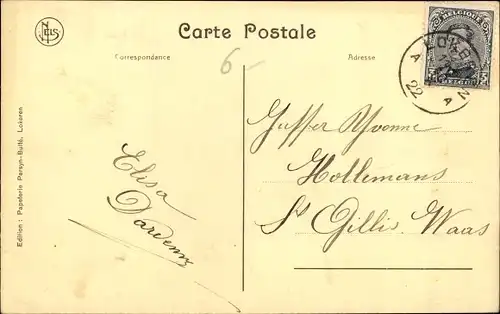 NELS
Carte Postale
Correspondance
Adresse
6
BELGIQUE
BELGIË
LOKEREN
A A
22
Juffer Yvonne
Hollemans
St Gillis. Waas
Elisa
Dardenn
Edition : Papeterie Persyn-Bulté, Lokeren